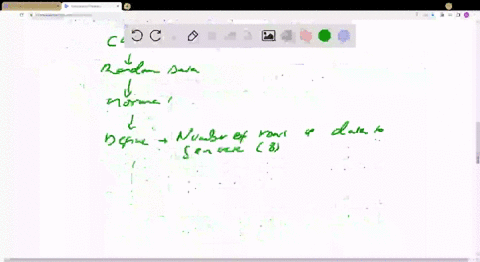 C
Random Data
Normal
Define → Number of rows of data to
generate (8)